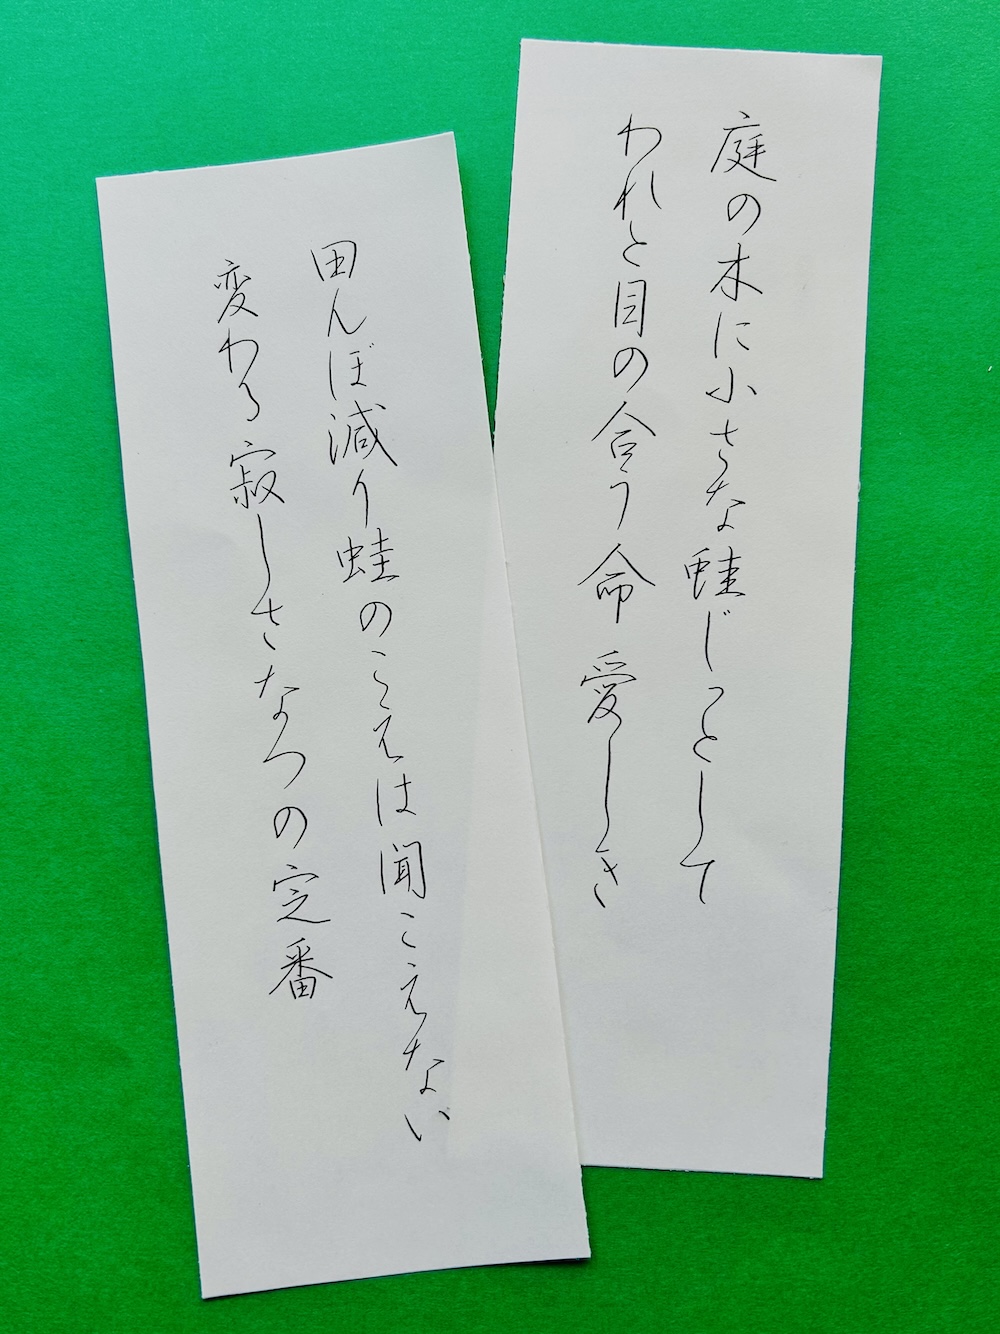 庭の木に小さな蛙じっとして
われと目の合う命愛しき
田んぼ減り蛙のこえは聞こえない
変わる寂しさなつの定番